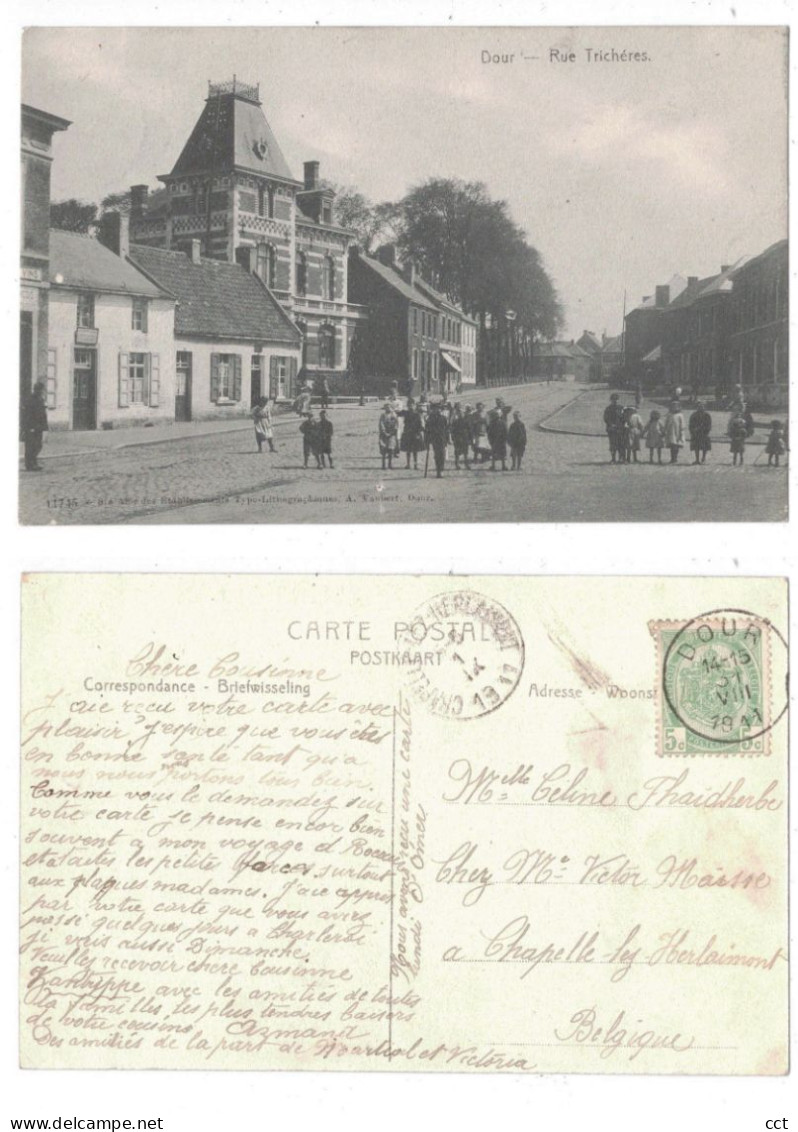 Dour — Rue Trichéres.
11745
CARTE POSTALE
POSTKAART
Correspondance - Briefwisseling
Adresse - Woonst
DOUR
14-15
31
VIII
1911
5c 5c
CHAPELLE HERLAIMONT
1
IX
19 11
Chère Cousinne
J'aie reçu votre carte avec
plaisir j'espire que vous êtes
en bonne santé tant qu'a
nous nous portons tous bien.
Comme vous le demandez sur
votre carte je pense encor bien
souvent a mon voyage d
et a tautes les petites farces surtout
aux plaques madames. J'aie appris
par votre carte que vous avier
passé quelques jours a Charleroi
ji vais aussi Dimanche.
Veuilles recevoir chère Cousinne
Xantippe avec les amitiés de toutes
la famille, les plus tendres baisers
de votre cousins Armand
Des amitiés de la part de et Victoria
Nous avons reçu une carte
lundi d'Omer
Melle Celine Thaidherbe
Chez Mr Victor Maisse
a Chapelle lez Herlaimont
Belgique
cct